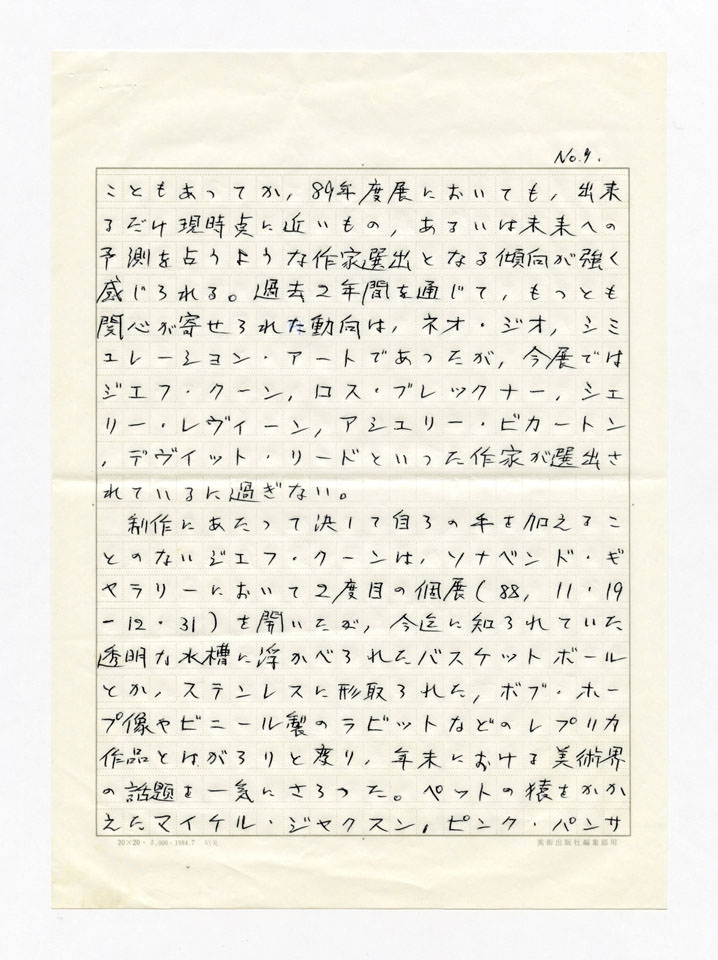 No.4.
こともあってか, 89年度展においても, 出来
るだけ現時点に近いもの, あるいは未来への
予測を占うような作家選出となる傾向が強く
感じられる。過去2年間を通じて, もっとも
関心が寄せられた動向は, ネオ・ジオ, シミ
ュレーション・アートであったが, 今展では
ジェフ・クーン, ロス・ブレックナー, シェ
リー・レヴィーン, アシュリー・ビカートン
, デヴィット・リードといった作家が選出さ
れているに過ぎない。
制作にあたって決して自らの手を加えるこ
とのないジェフ・クーンは, ソナベンド・ギ
ャラリーにおいて2度目の個展(88, 11・19
-12・31)を開いたが, 今迄に知られていた
透明な水槽に浮かべられたバスケットボール
とか, ステンレスに形取られた, ボブ・ホー
プ像やビニール製のラビットなどのレプリカ
作品とはがらりと変り, 年末における美術界
の話題を一気にさらった。ペットの猿をかか
えたマイケル・ジャクスン, ピンク・パンサ
20×20・3,000-1984.7
美術出版社編集部用